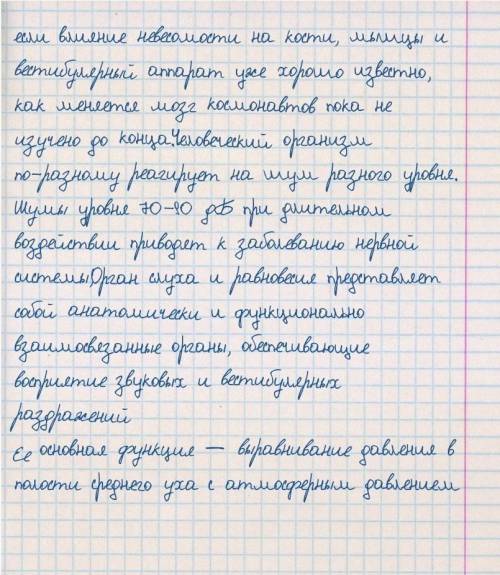 если влияние невесомости на кости, мышцы и
вестибулярный аппарат уже хорошо известно,
как меняется мозг космонавтов пока не
изучено до конца.Человеческий организм
по-разному реагирует на шум разного уровня.
Шумы уровня 70-90 дБ при длительном
воздействии приводят к заболеванию нервной
системы.Орган слуха и равновесия представляет
собой анатомически и функционально
взаимосвязанные органы, обеспечивающие
восприятие звуковых и вестибулярных
раздражений
Ее основная функция — выравнивание давления в
полости среднего уха с атмосферным давлением